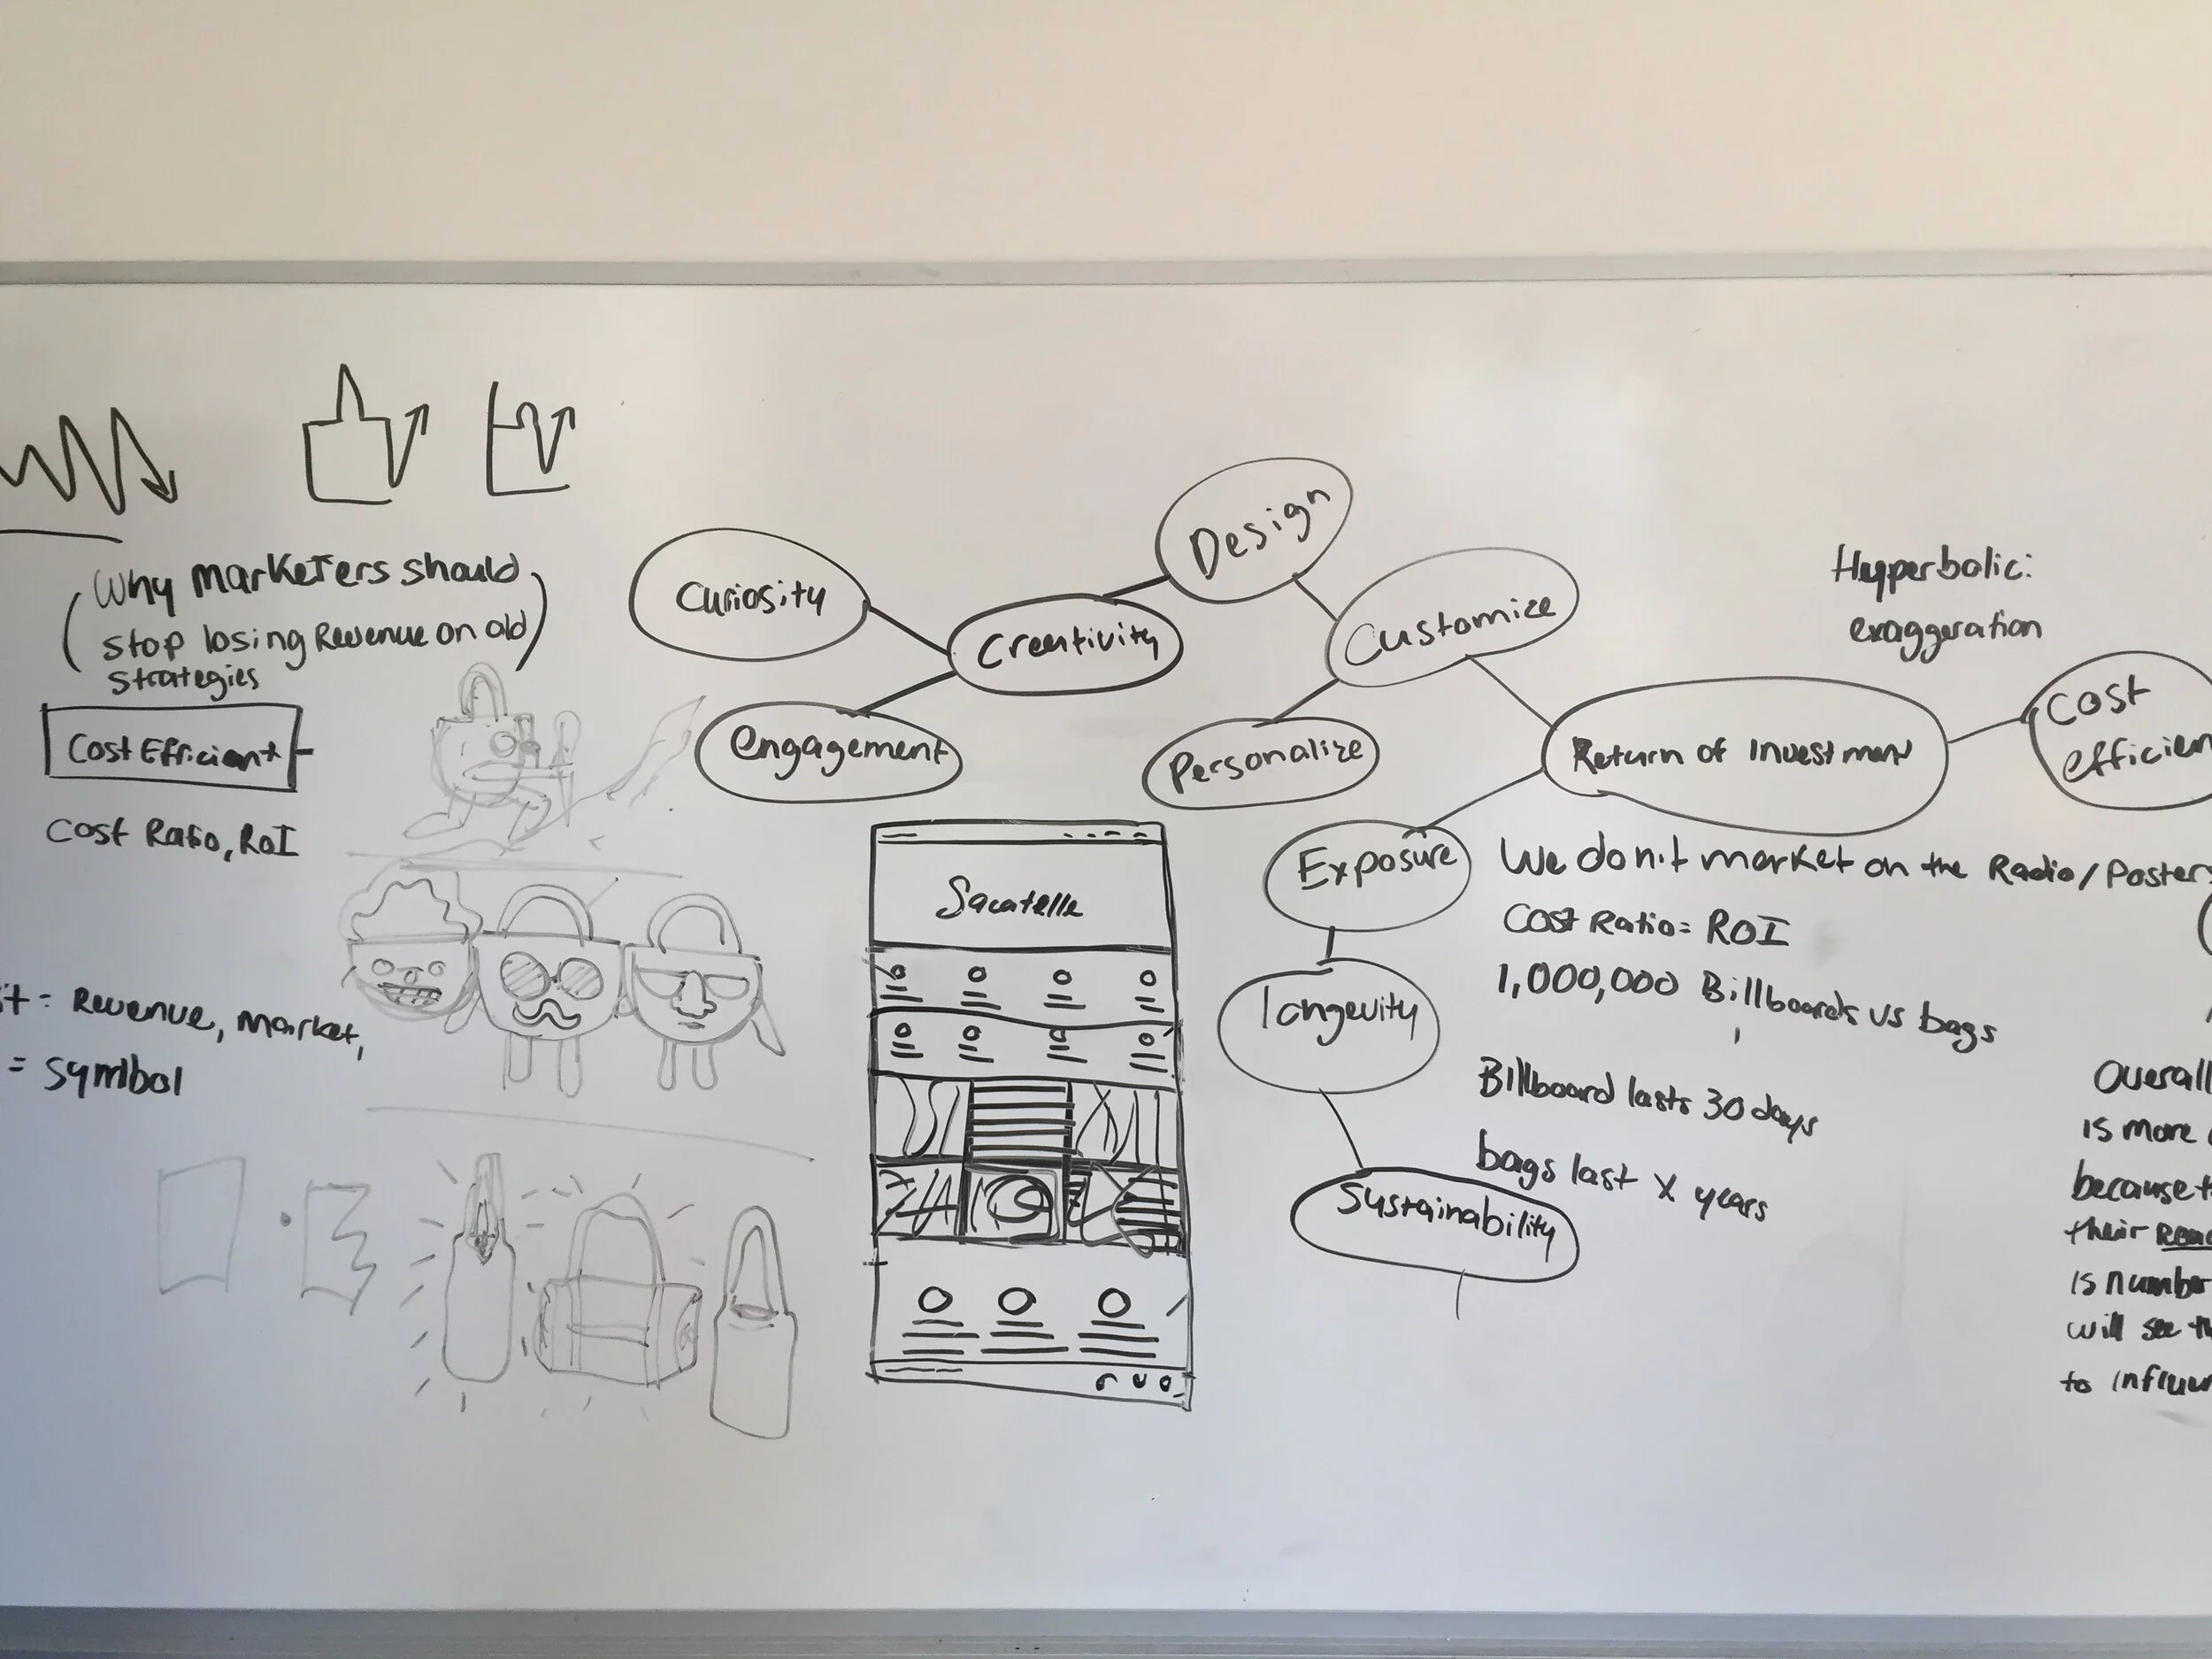 Why Marketers should
stop losing Revenue on old
strategies
Cost Efficient
Cost Ratio, RoI
it = Revenue, market,
= symbol
Design
Curiosity
Creativity
Customize
engagement
Personalize
Return of Investment
Cost
efficien
Hyperbolic:
exaggeration
Sacatelle
Exposure
longevity
Sustainability
We don't market on the Radio/Posters
Cost Ratio = ROI
1,000,000 Billboards vs bags
Billboard lasts 30 days
bags last X years
Overall
is more
because t
their
is number
will see th
to influen